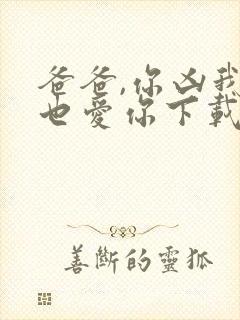 爸爸,你凶我
也爱你下載
善斷的靈狐